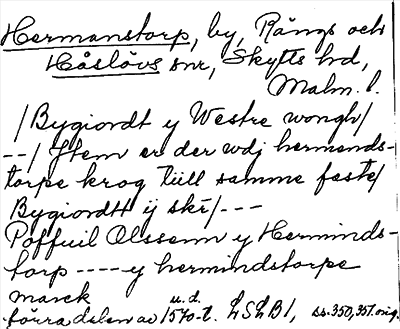 Hermanstorp, by, Rängs och
Håslövs snr, Skytts hd,
Malm. l.
/Bygiordt y Westre wongh/
--/ Jtem er der wdj hermends-
torpe krog tiill samme feste/
Bygiordtt ij skr/---
Poffuil Olssenn y Herminds-
torp ---- y hermindstorpe
marck u. d.
förra delen av 1570-t. LSLB1, ss. 350, 351. orig.